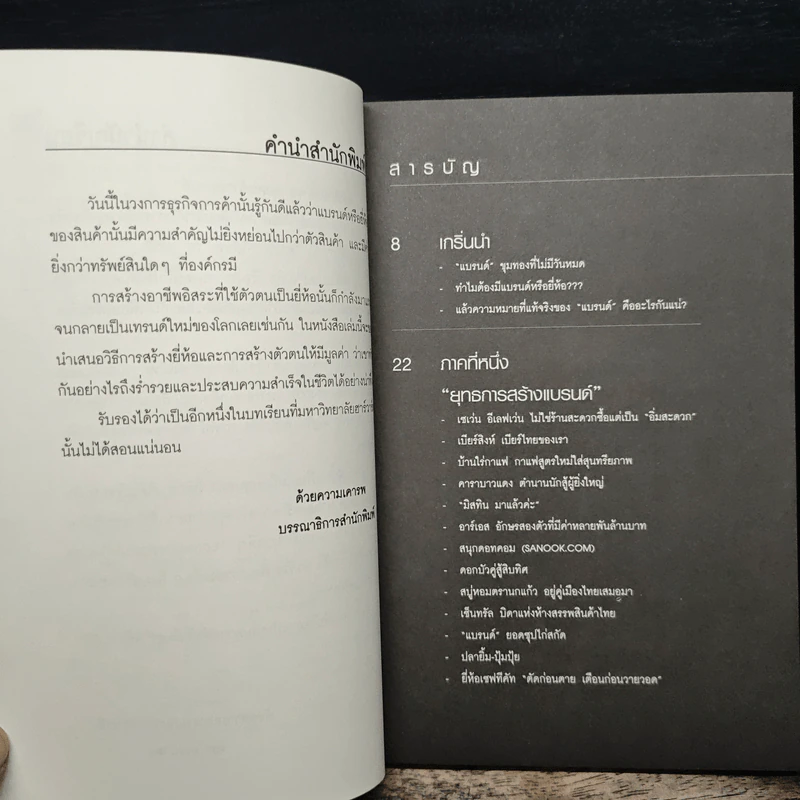 คำนำสำนักพิมพ์
วันนี้ในวงการธุรกิจการค้านั้นรู้กันดีแล้วว่าแบรนด์หรือยี่ห้อ
ของสินค้านั้นมีความสำคัญไม่ยิ่งหย่อนไปกว่าตัวสินค้า
ยิ่งกว่าทรัพย์สินใดๆ ที่องค์กรมี
การสร้างอาชีพอิสระที่ใช้ตัวตนเป็นยี่ห้อนั้นก็กำลังมา
จนกลายเป็นเทรนด์ใหม่ของโลกเลยเช่นกัน ในหนังสือเล่มนี้จะ
นำเสนอวิธีการสร้างยี่ห้อและการสร้างตัวตนให้มีมูลค่า ว่าเขา
กันอย่างไรถึงร่ำรวยและประสบความสำเร็จในชีวิตได้อย่าง
รับรองได้ว่าเป็นอีกหนึ่งในบทเรียนที่มหาวิทยาลัยฮาร์วาร์ด
นั้นไม่ได้สอนแน่นอน
ด้วยความเคารพ
บรรณาธิการสำนักพิมพ์
สารบัญ
8 เกริ่นนำ
- "แบรนด์" ขุมทองที่ไม่มีวันหมด
- ทำไมต้องมีแบรนด์หรือยี่ห้อ???
- แล้วความหมายที่แท้จริงของ "แบรนด์" คืออะไรกันแน่?
22 ภาคที่หนึ่ง
"ยุทธการสร้างแบรนด์"
- เซเว่น อีเลฟเว่น ไม่ใช่ร้านสะดวกซื้อแต่เป็น "อิ่มสะดวก"
- เบียร์สิงห์ เบียร์ไทยของเรา
- บ้านไร่กาแฟ กาแฟสูตรใหม่ใส่สุนทรียภาพ
- คาราบาวแดง ตำนานนักสู้ผู้ยิ่งใหญ่
- "มิสทิน มาแล้วค่ะ"
- อาร์เอส อักษรสองตัวที่มีค่าหลายพันล้านบาท
- สนุกดอทคอม (SANOOK.COM)
- ดอกบัวคู่สู้สิบทิศ
- สบู่หอมตรานกแก้ว อยู่คู่เมืองไทยเสมอมา
- เซ็นทรัล บิดาแห่งห้างสรรพสินค้าไทย
- "แบรนด์" ยอดซุปไก่สกัด
- ปลายิ้ม-ปุ้มปุ้ย
- ยี่ห้อเซฟทีคัท "ตัดก่อนตาย เตือนก่อนวายวอด"